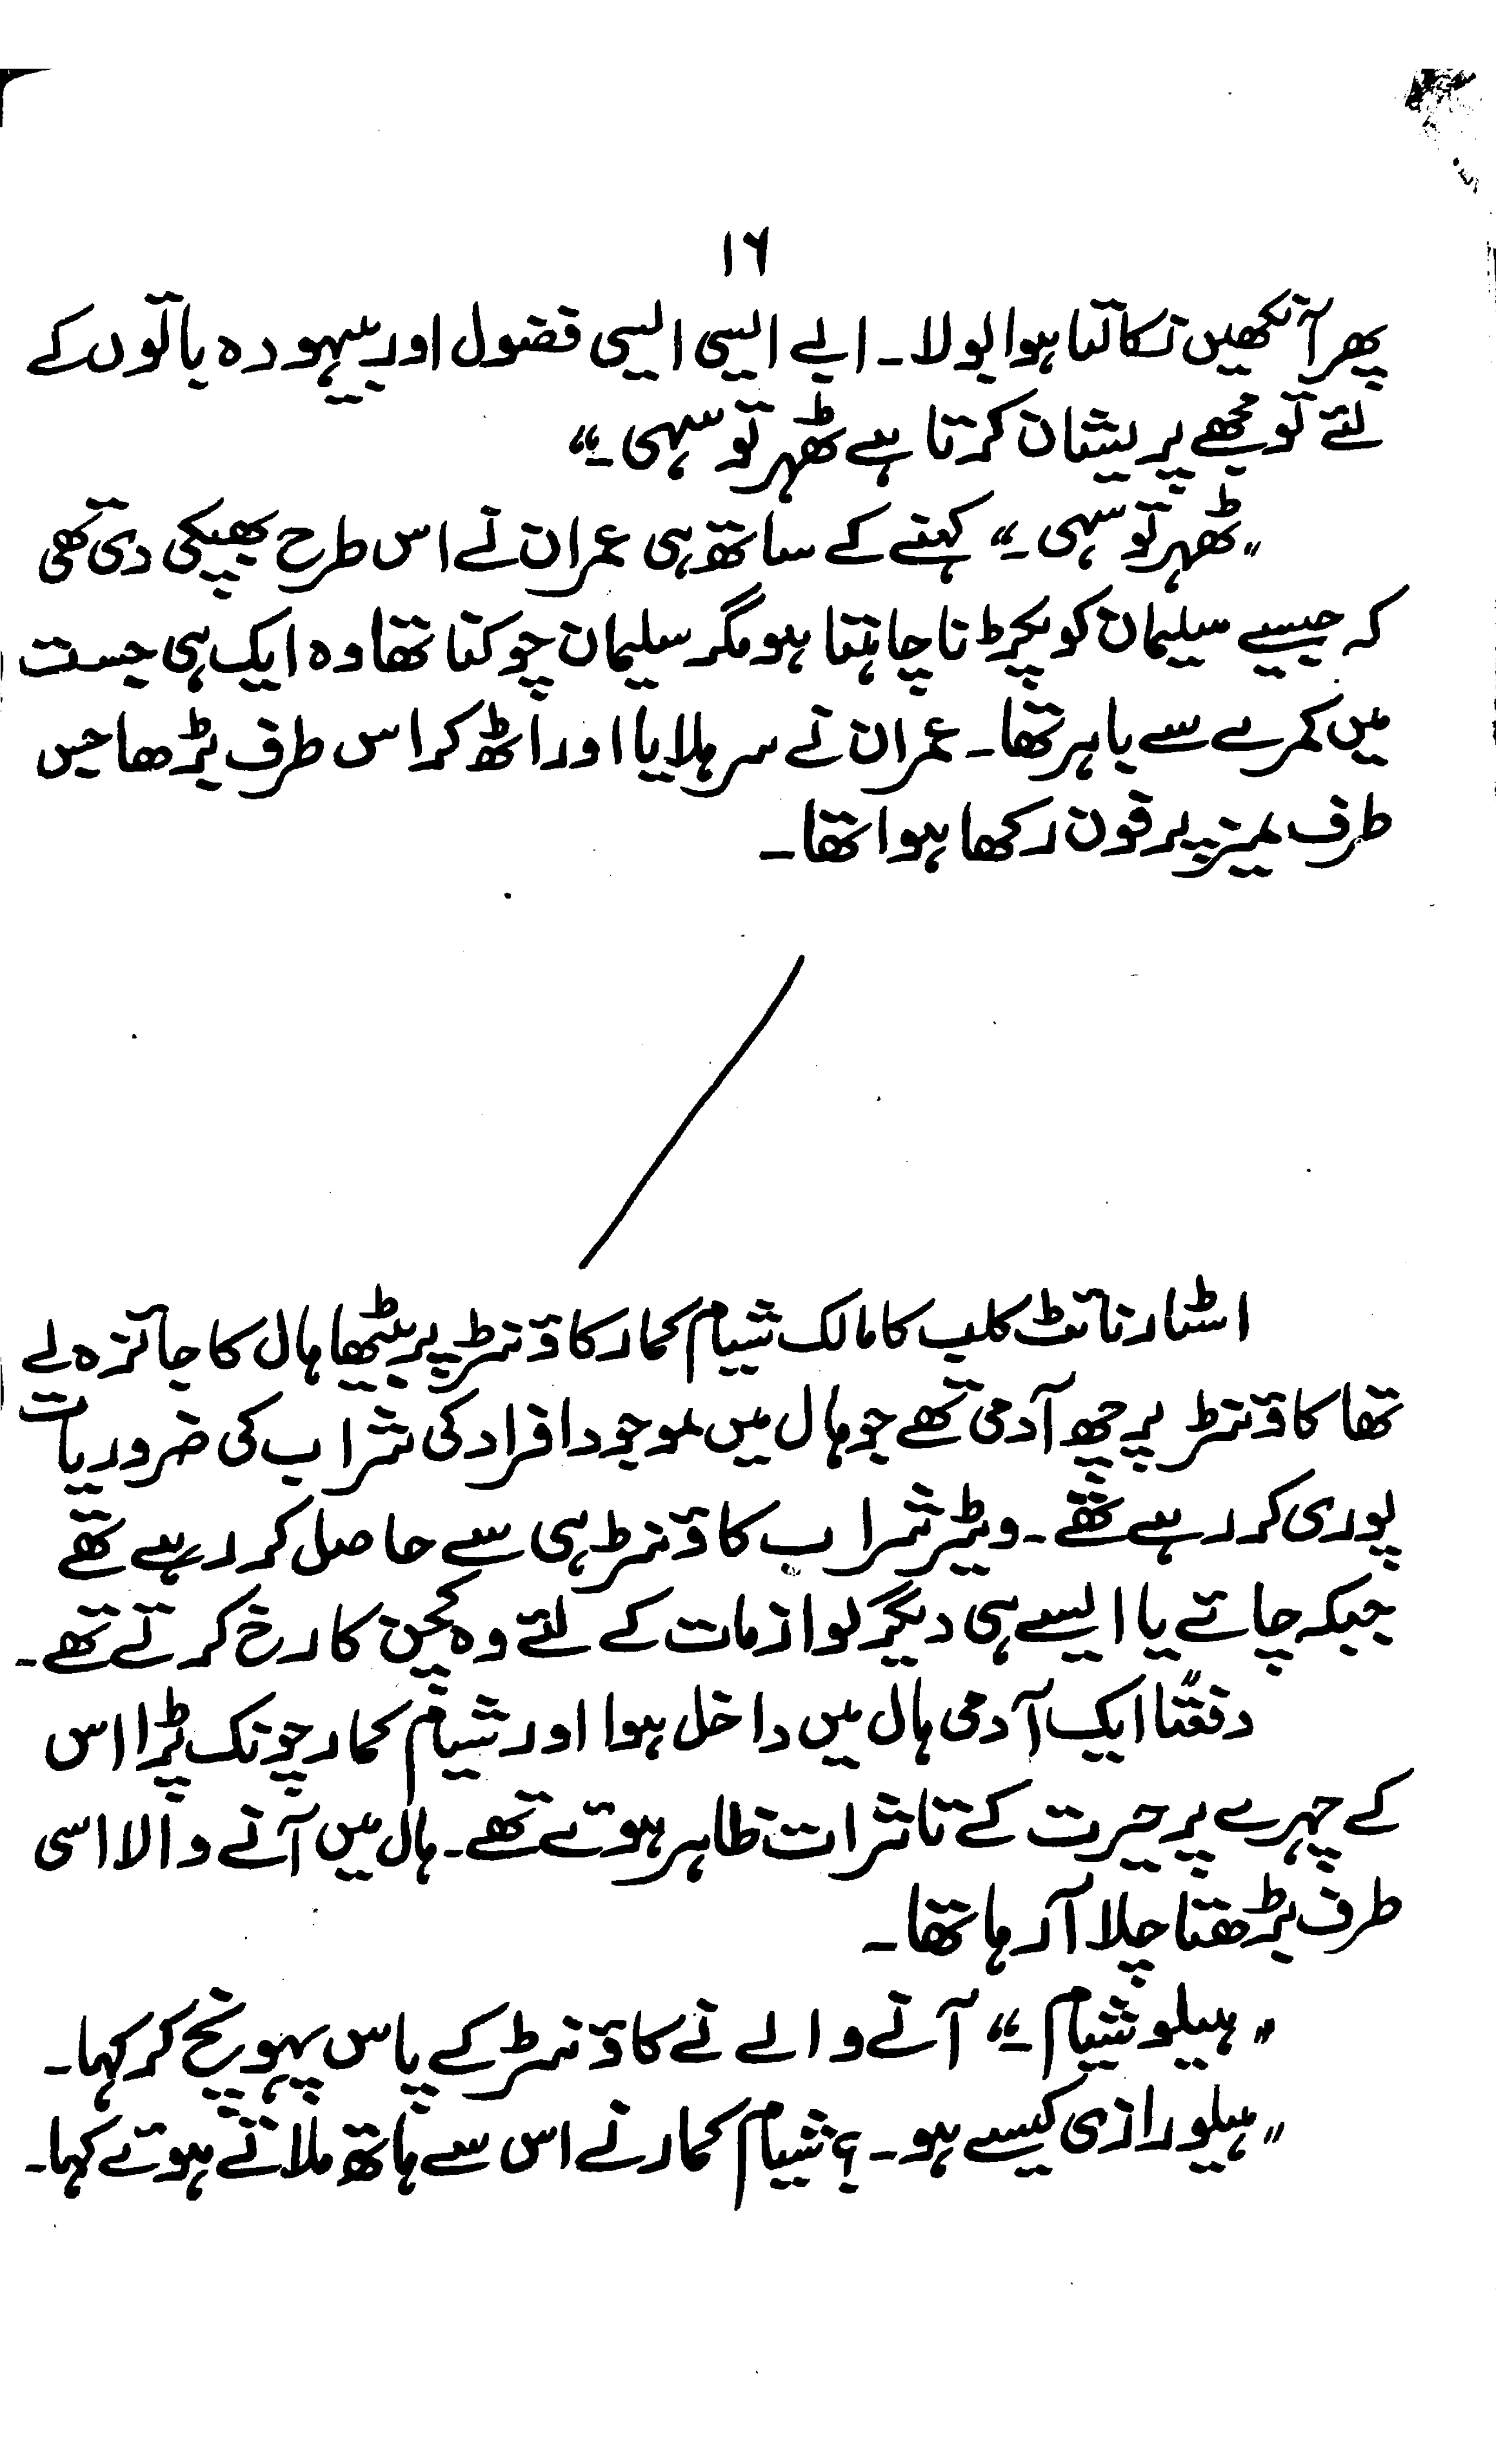 ۱۶
پھر آنکھیں نکالتا ہوا بولا۔ ابے ایسی ایسی فضول اور بیہودہ باتوں کے
لئے تو مجھے پریشان کرتا ہے ٹھہر تو سہی۔“
”ٹھہر تو سہی۔“ کہنے کے ساتھ ہی عمران نے اس طرح بھپکی دی تھی
کہ جیسے سلیمان کو پکڑنا چاہتا ہو مگر سلیمان چوکنا تھا وہ ایک ہی جست
میں کمرے سے باہر تھا۔ عمران نے سر ہلایا اور اٹھ کر اس طرف بڑھا جس
طرف میز پر فون رکھا ہوا تھا۔
اسٹار نائٹ کلب کا مالک شیام کمار کاؤنٹر پر بیٹھا ہال کا جائزہ لے
تھا کاؤنٹر پر چھ آدمی تھے جو ہال میں موجود افراد کی شراب کی ضروریات
پوری کر رہے تھے۔ ویٹر شراب کاؤنٹر ہی سے حاصل کر رہے تھے
جبکہ چائے یا ایسے ہی دیگر لوازمات کے لئے وہ کچن کا رخ کرتے تھے۔
دفعتاً ایک آدمی ہال میں داخل ہوا اور شیام کمار چونک پڑا اس
کے چہرے پر حیرت کے تاثرات ظاہر ہوئے تھے۔ ہال میں آنے والا اسی
طرف بڑھتا چلا آ رہا تھا۔
”ہیلو شیام۔“ آنے والے نے کاؤنٹر کے پاس پہونچ کر کہا۔
”ہیلو رازی کیسے ہو۔؟ شیام کمار نے اس سے ہاتھ ملاتے ہوئے کہا۔